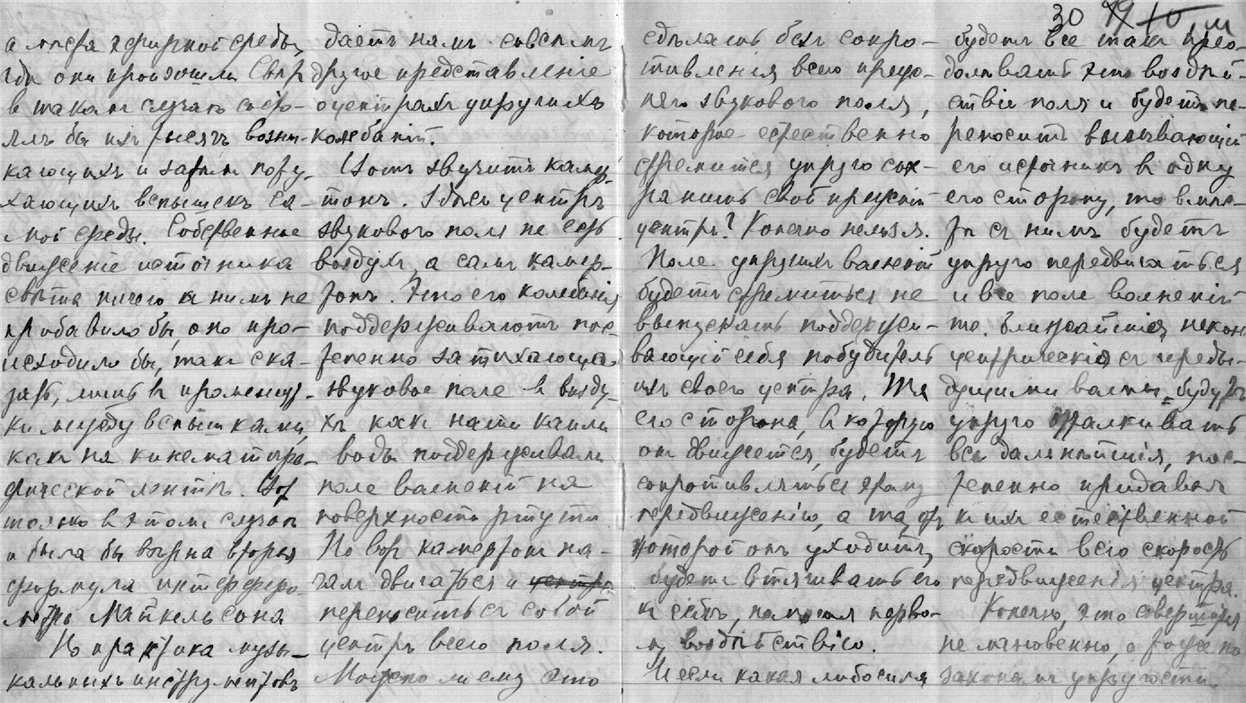 а
эфирной среды,
гдѣ они произошли
в таком случаѣ
бы их тысяч возни-
кающих и затѣм поту-
хающих вспышек са-
мой среды. Собственное
движеніе источника
свѣта ничего к ним не
прибавило бы, оно про-
исходило бы, так ска-
зать, лишь в промежут-
ки между вспышками,
как на кинематогра-
фической лентѣ. Вот
только в этом случаѣ
и была бы вѣрна вторая
формула интерферо-
метра Майкельсона
Но практика музы-
кальных инструментовъ
даетъ намъ совсѣмъ
другое представленіе
о центрахъ упругихъ
колебаній.
Вотъ звучитъ камер-
тонъ. Здѣсь центръ
звукового поля не есть
воздухъ, а самъ камер-
тонъ. Это его колебанія
поддерживаютъ пос-
тепенно затихающее
звуковое поле в возду-
хѣ как наши капли
воды поддерживали
поле волненій на
поверхности ртути
Но вот камертон на-
чал двигаться и
переносить с собой
центръ всего поля.
Может ли ему это
30
сдѣлать без сопро-
тивленія всего преж-
няго звукового поля,
которое естественно
стремится упруго сох-
ранить свой прежній
центръ? Конечно нельзя.
Поле упругих волненій
будетъ стремиться не
выпускать поддержи-
вающій себя побудитель
из своего центра. Та
его сторона, в которую
он движется, будетъ
сопротивляться этому
передвиженію, а та от
которой он уходитъ,
будетъ втягивать его
к себѣ, перво-
му воздѣйствію.
И если какая либо сила
будетъ все таки прео-
долѣвать это воздѣй-
ствіе поля и будетъ пе-
реносить вызывающій
его источник в одну
его сторону, то вмѣс-
тѣ с нимъ будетъ
упруго передвигаться
и все поле волненій
т.е. ближайшія, некон-
центрическія с преды-
дущими волны будутъ
упруго отталкивать
всѣ дальнѣйшія, пос-
тепенно придавая
к их естественной
скорости всю скорость
передвиженія центра.
Конечно, это совершится
не мгновенно, а тоже по
законам упругости.